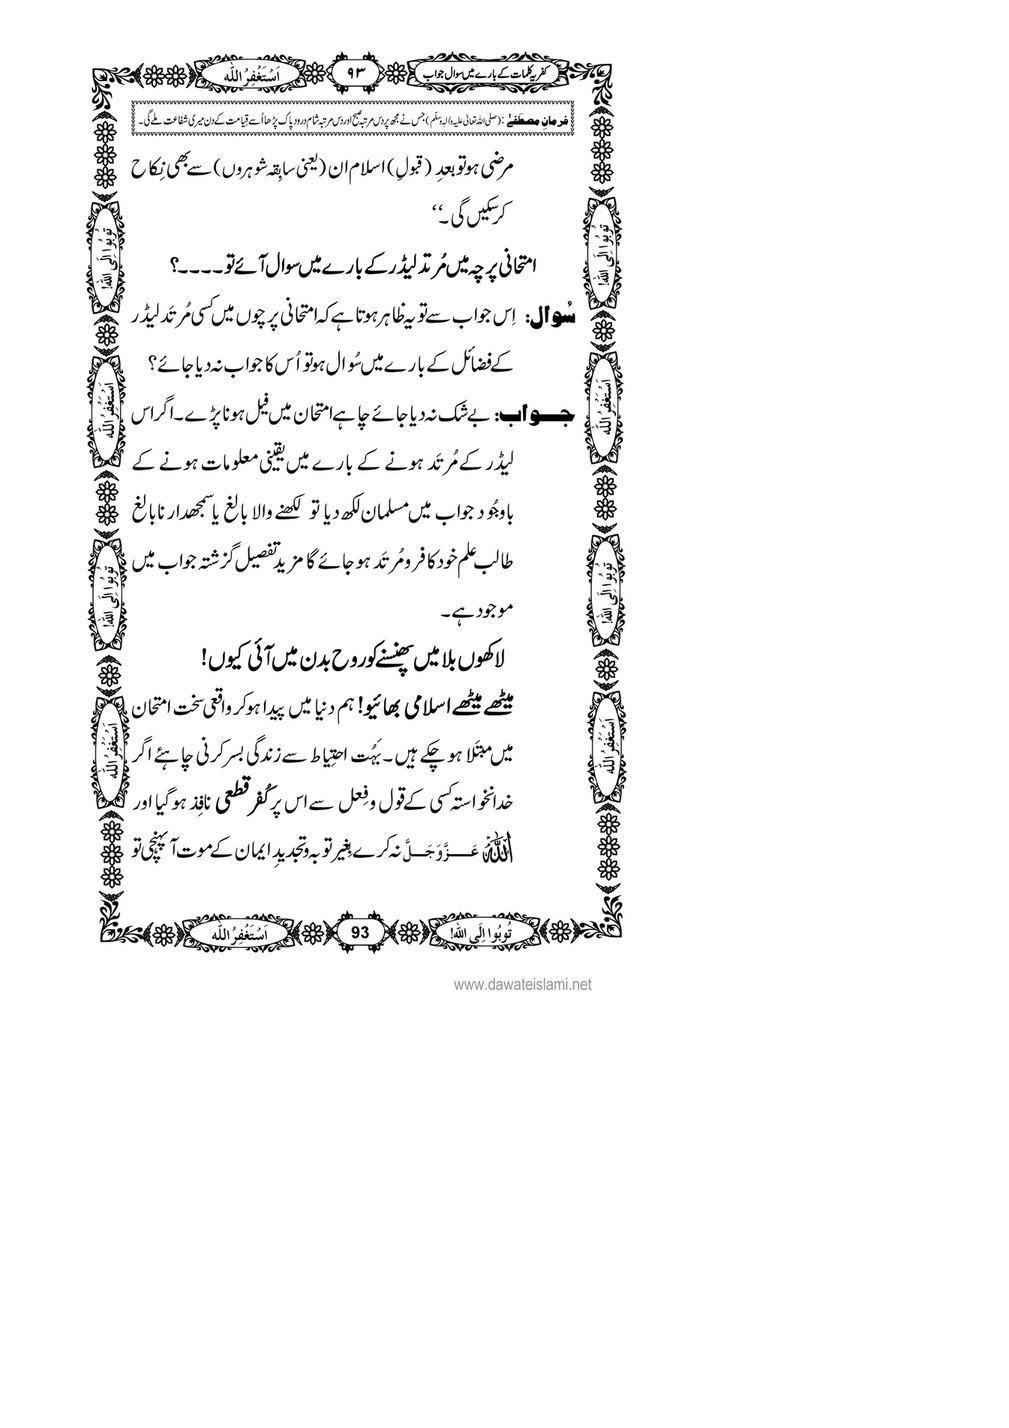 کفریہ کلمات کے بارے میں سوال جواب
۹۳
اَسْتَغْفِرُ اللہ
فرمانِ مصطفٰے: (صلی اللہ تعالیٰ علیہ واٰلہٖ وسلّم) جس نے مجھ پر دس مرتبہ صبح اور دس مرتبہ شام درود پاک پڑھا اُسے قیامت کے دن میری شفاعت ملے گی۔
مرضی ہو تو بعدِ (قبولِ) اسلام ان (یعنی سابِقہ شوہروں) سے بھی نِکاح
کرسکیں گی۔‘‘
امتحانی پرچہ میں مُرتد لیڈر کے بارے میں سوال آئے تو۔۔۔۔؟
سُوال: اِس جواب سے تو یہ ظاہر ہوتا ہے کہ امتحانی پرچوں میں کسی مُرتَد لیڈر
کے فضائل کے بارے میں سُوال ہو تو اُس کا جواب نہ دیا جائے؟
جواب: بے شک نہ دیا جائے چاہے امتحان میں فیل ہونا پڑے۔ اگر اس
لیڈر کے مُرتَد ہونے کے بارے میں یقینی معلومات ہونے کے
باوُجُود جواب میں مسلمان لکھ دیا تو لکھنے والا بالغ یا سمجھدار نابالغ
طالب علم خود کافر و مُرتَد ہو جائے گا مزید تفصیل گزشتہ جواب میں
موجود ہے۔
لاکھوں بلا میں پھنسنے کو روح بدن میں آئی کیوں!
میٹھے میٹھے اسلامی بھائیو! ہم دنیا میں پیدا ہو کر واقعی سخت امتحان
میں مبتَلا ہو چکے ہیں۔ بَہُت احتِیاط سے زندگی بسر کرنی چاہئے اگر
خدانخواستہ کسی کے قول وفِعل سے اس پر کُفرِ قطعی نافِذ ہو گیا اور
اللہ عَزَّوَجَلَّ نہ کرے بِغیر توبہ و تجدیدِ ایمان کے موت آ پہنچی تو
تُوبُوا اِلَی اللہ!
93
اَسْتَغْفِرُ اللہ
تُوبُوا اِلَی اللہ!
اَسْتَغْفِرُ اللہ
تُوبُوا اِلَی اللہ!
اَسْتَغْفِرُ اللہ
تُوبُوا اِلَی اللہ!
اَسْتَغْفِرُ اللہ
تُوبُوا اِلَی اللہ!
اَسْتَغْفِرُ اللہ
www.dawateislami.net